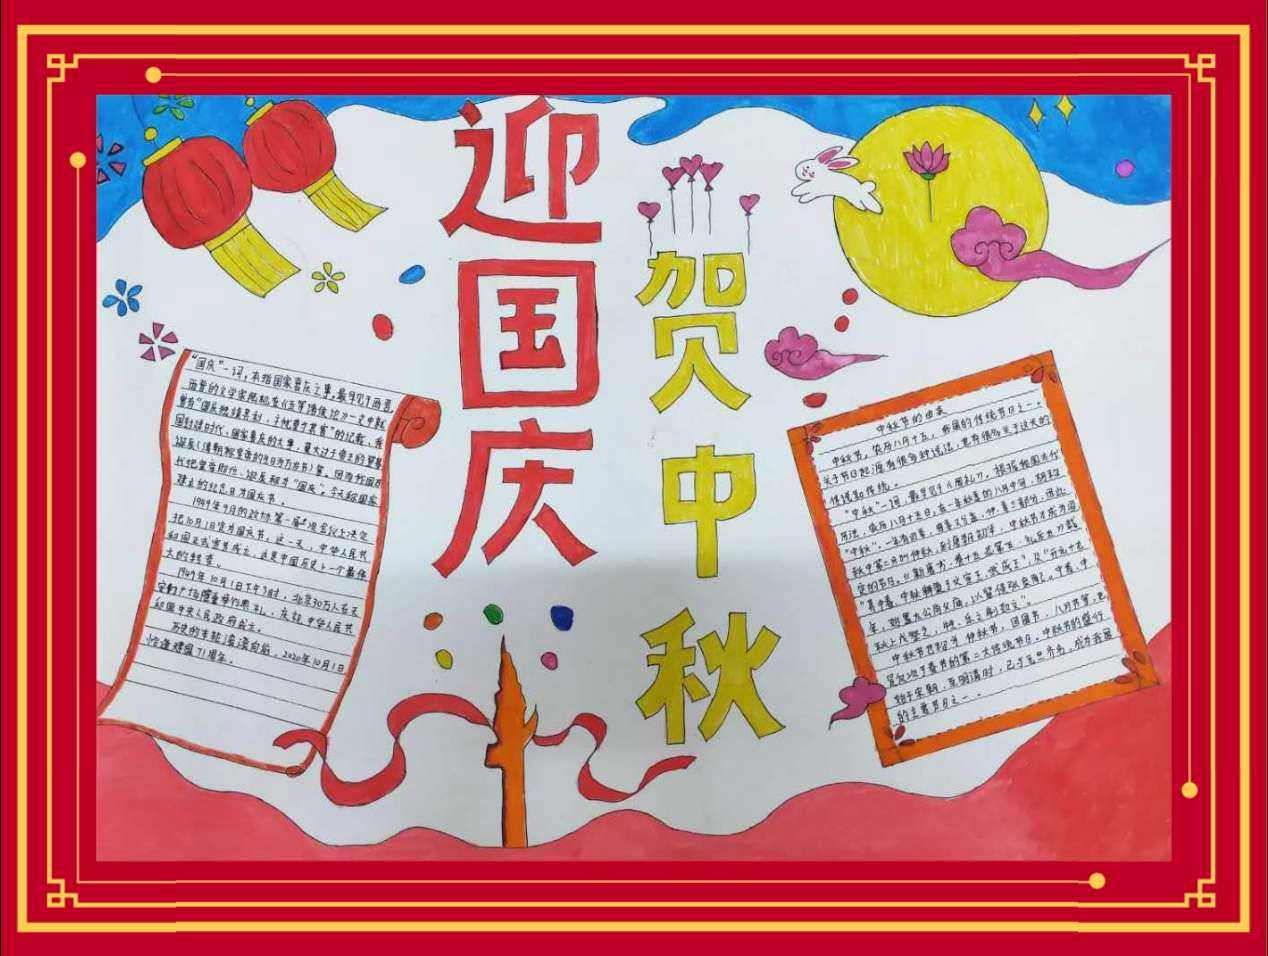 迎国庆
贺中秋
"国庆"一词,本指国家喜庆之事,最早见于西晋。
西晋的文学家陆机在《五等诸侯论》一文中就
曾有"国庆独飨其利,主忧莫与其害"的记载,我
国封建时代,国家喜庆的大事,莫大过于帝王的登基
诞辰(清朝称皇帝的生日为万岁节)等。因而我国古
代把皇帝即位、诞辰称为"国庆"。今天称国家
建立的纪念日为国庆节。
1949年9月的政协第一届
把10月1日定为国庆节。这一天,中华人民共
和国正式宣告成立,这是中国历史上一个最伟
大的转变。
1949年10月1日下午3时,北京30万人在天
安门广场隆重举行典礼,庆祝中华人民共
和国中央人民政府成立。
历史的车轮滚滚向前,2020年10月1日
恰逢建国71周年。
中秋节的由来
中秋节,农历八月十五,我国的传统节日之一。
关于节日起源有很多种说法,也有很多关于这天的
传说和传统。
"中秋"一词,最早见于《周礼》。根据我国古代
历法,农历八月十五日,在一年秋季的八月中间,故称
"中秋"。一年有四季,每季又分孟、仲、季三部分,因此
秋中第二月叫仲秋,到唐朝初年,中秋节才成为固
定的节日。《新唐书·卷十五 志第五·礼乐五》载
"其中春、中秋释奠于文宣王、武成王",及"开元十九
年,始置太公尚父庙,以留侯张良配。中春、中
秋上戊祭之,牲、乐之制如文"。
中秋节也称为仲秋节,团圆节,八月节等,也
是仅次于春节的第二大传统节日。中秋节的盛行
始于宋朝,至明清时,已与元旦齐名,成为我国
的主要节日之一。